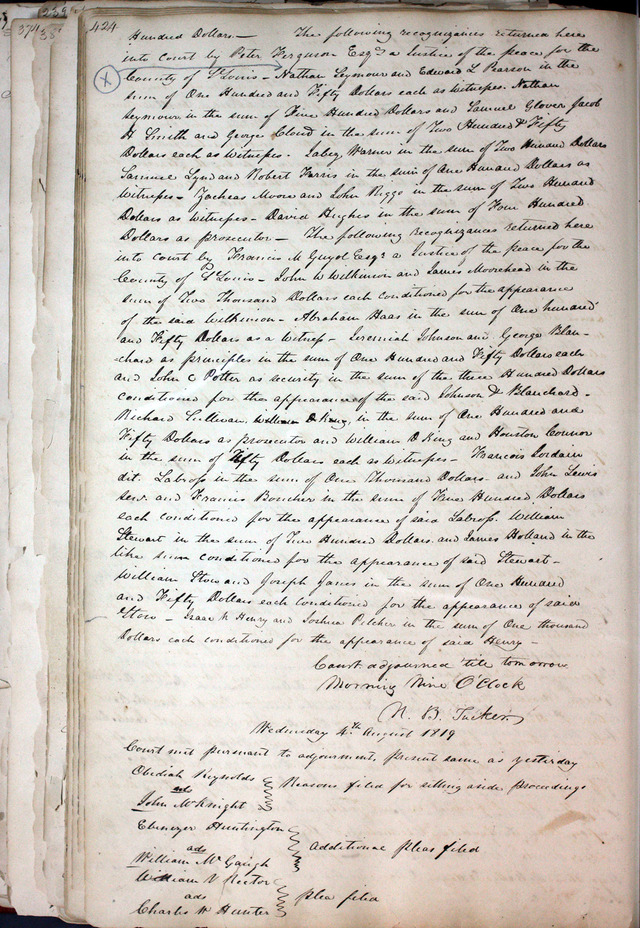 424
Hundred Dollars — The following recognizances returned here
into Court by Peter Ferguson Esqr a Justice of the peace for the
County of St Louis — Nathan Seymour and Edward L Pearson in the
sum of One Hundred and Fifty Dollars each as witnesses. Nathan
Seymour in the sum of Five Hundred Dollars and Samuel Glover Jacob
H Smith and George Cloud in the sum of Two Hundred & Fifty
Dollars each as witnesses — Warner in the sum of Two Hundred Dollars
Samuel Lynd and Robert Farris in the sum of One Hundred Dollars as
witnesses — Zacheas Moore and John Riggo in the sum of Two Hundred
Dollars as witnesses — David Hughes in the sum of Four Hundred
Dollars as prosecutor — The following recognizances returned here
into court by Francis M Guyol Esqr a Justice of the peace for the
County of St Louis — John W Wilkinson and James Moorehead in the
sum of Two Thousand Dollars each conditioned for the appearance
of the said Wilkinson — Abraham Haas in the sum of One hundred
and Fifty Dollars as a witness — Jeremiah Johnson and George Blan-
chard as principles in the sum of One Hundred and Fifty Dollars each
and John C Potter as security in the sum of the three Hundred Dollars
conditioned for the appearance of the said Johnson & Blanchard —
Richard Sullivan, William D King, in the sum of One Hundred and
Fifty Dollars as prosecutor and William D King and Houston Connor
in the sum of Fifty Dollars each as witnesses — Francois Jordain
dit. Labross in the sum of One Thousand Dollars and John Lewis
senr. and Francis Boucher in the sum of Five Hundred Dollars
each conditioned for the appearance of said Labross. William
Stewart in the sum of Five Hundred Dollars and James Holland in the
like sum conditioned for the appearance of said Stewart —
William Stow and Joseph James in the sum of One Hundred
and Fifty Dollars each conditioned for the appearance of said
Stow — Isaac W Henry and Joshua Pilcher in the sum of One thousand
Dollars each conditioned for the appearance of said Henry —
Court adjourned till tomorrow
Morning Nine O'Clock
N. B. Tucker
Wednesday 4th August 1819
Court met pursuant to adjournment, present same as yesterday
Obediah Reynolds
ads
John McKnight
Reasons filed for setting aside proceedings
Ebenezer Huntington
ads
William McGaugh
additional pleas filed
William V Rector
ads
Charles W Hunter
plea filed